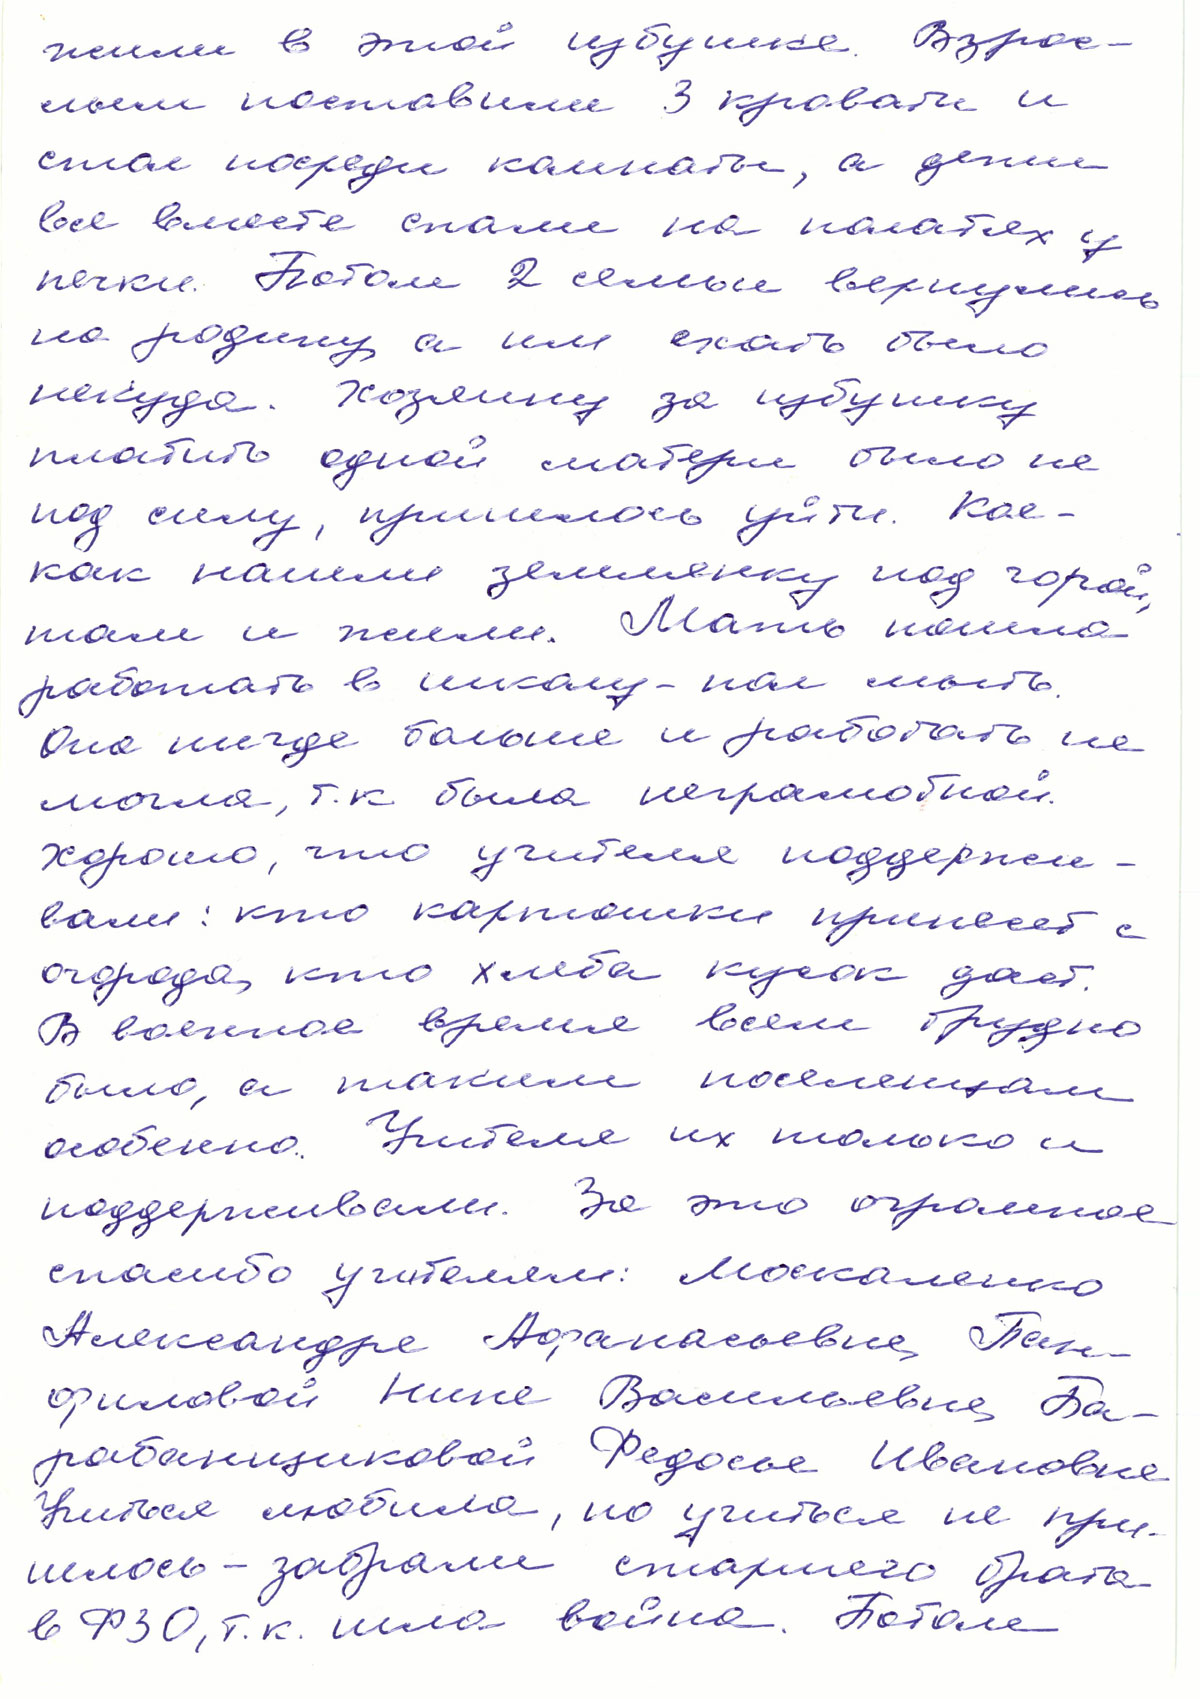 жили в этой избушке. Взрос-
лым поставили 3 кровати и
стол посреди комнаты, а дети
все вместе спали на полатях у
печки. Потом 2 семьи вернулись
на родину, а им ехать было
некуда. Хозяину за избушку
платить одной матери было не
под силу, пришлось уйти. Кое-
как нашли землянку под горой,
там и жили. Мать пошла
работать в школу - пол мыть.
Она нигде больше и работать не
могла, т.к. была неграмотной.
Хорошо, что учителя поддержи-
вали: кто картошки принесет с
огорода, кто хлеба кусок даст.
В военное время всем трудно
было, а таким поселенцам
особенно. Учителя их только и
поддерживали. За это огромное
спасибо учителям: Москаленко
Александре Афанасьевне, Пан-
филовой Нине Васильевне, Ба-
рабанщиковой Федосье Ивановне
Учиться любила, но учиться не при-
шлось - забрали старшего брата
в ФЗО, т.к. шла война. Потом